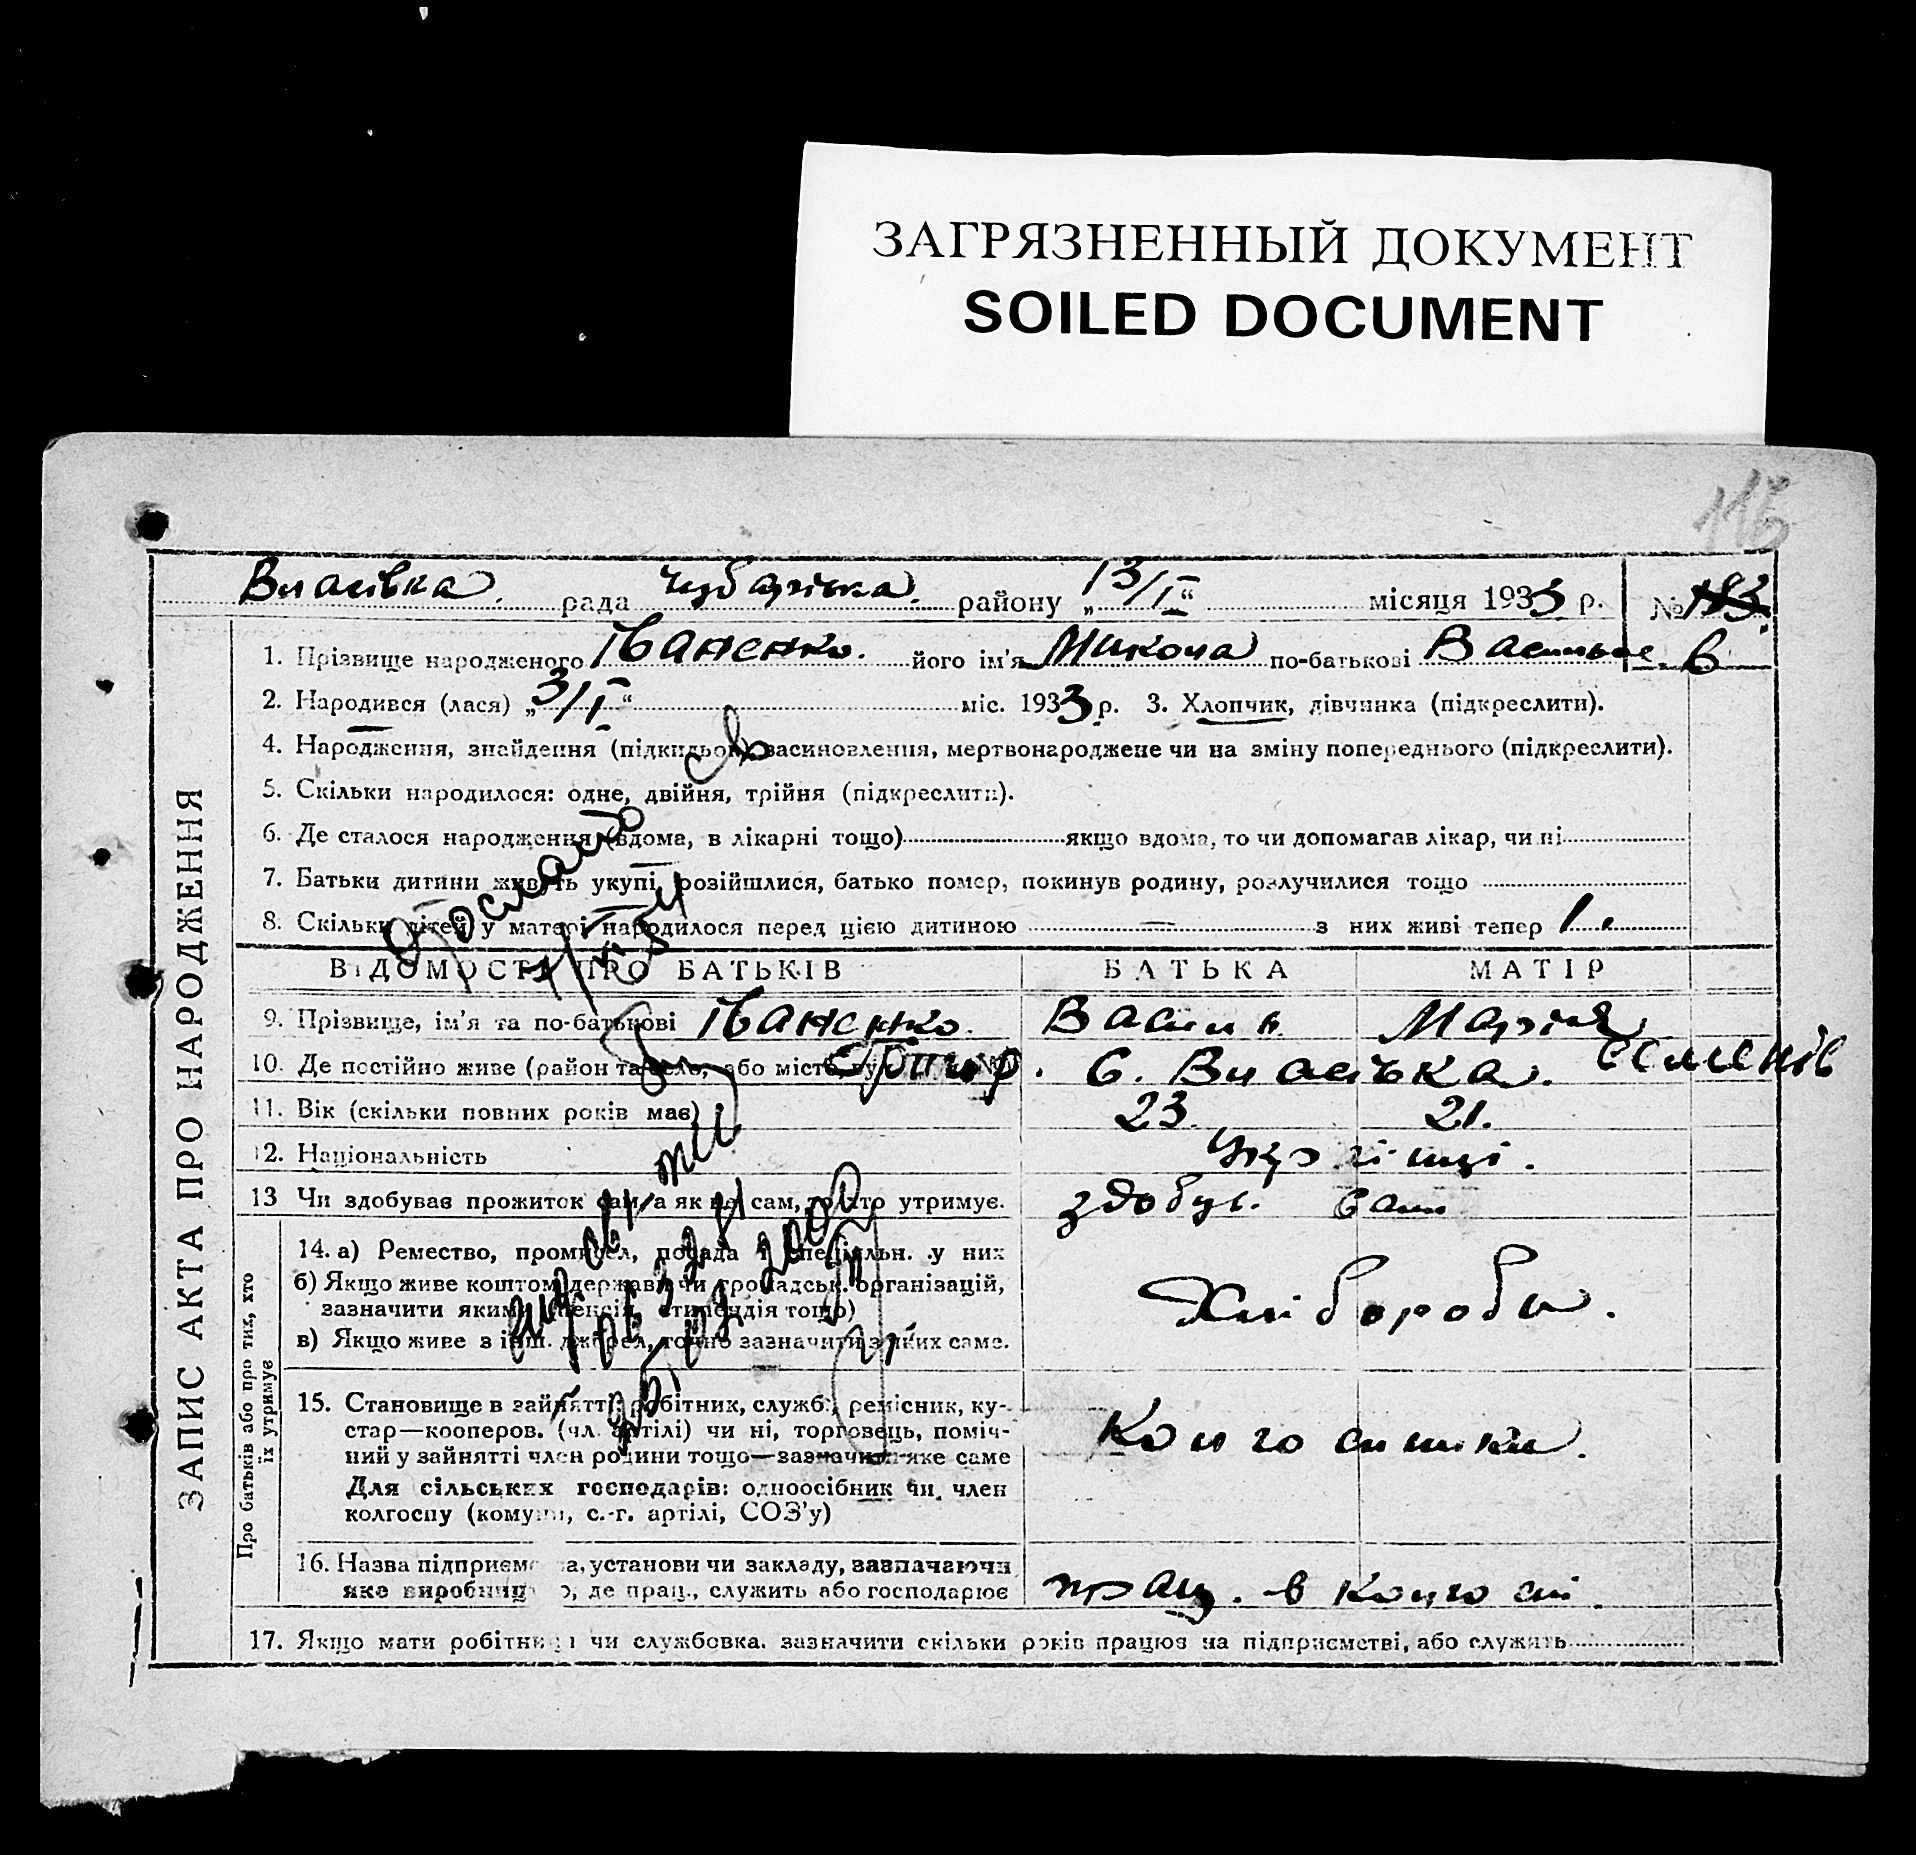 ЗАГРЯЗНЕННЫЙ ДОКУМЕНТ
SOILED DOCUMENT
116
Власівка рада Чубарівка району „13/I“ місяця 1933 р. №
1. Прізвище народженого Іваненко його ім'я Микола по-батькові Васильов
2. Народився (лася) „3/I“ міс. 1933 р. 3. Хлопчик, дівчинка (підкреслити).
4. Народження, знайдення (підкидьок), засиновлення, мертвонароджене чи на зміну попереднього (підкреслити).
5. Скільки народилося: одне, двійня, трійня (підкреслити).
6. Де сталося народження (вдома, в лікарні тощо) якщо вдома, то чи допомагав лікар, чи ні
7. Батьки дитини живуть укупі, розійшлися, батько помер, покинув родину, розлучилися тощо
8. Скільки дітей у матері народилося перед цією дитиною — з них живі тепер 1.
ВІДОМОСТІ ПРО БАТЬКІВ БАТЬКА МАТІР
9. Прізвище, ім'я та по-батькові Іваненко Василь Марія
10. Де постійно живе (район та село, або місто, с. Власівка.
11. Вік (скільки повних років має) 23 21.
12. Національність Українці.
13 Чи здобував прожиток сам, а як не сам, то хто утримує. здобув. сам
14. а) Ремество, промисел, посада і спеціяльн. у них
б) Якщо живе коштом держави чи громадськ. організацій,
зазначити якими (пенсія, стипендія тощо)
в) Якщо живе з інш. джерел, точно зазначити з яких саме.
Хлібороби.
15. Становище в зайнятті: робітник, службі, ремісник, ку-
стар—кооперов. (чл. артілі) чи ні, торговець, поміч-
ний у зайнятті член родини тощо—зазначити яке саме
Для сільських господарів: одноосібник чи член
колгоспу (комуни, с.-г. артілі, СОЗ'у)
Колгоспники.
16. Назва підприємства, установи чи закладу, зазначаючи
яке виробництво, де прац., служить або господарює
прац. в колгоспі.
17. Якщо мати робітниця чи службовка, зазначити скільки років працює на підприємстві, або служить
ЗАПИС АКТА ПРО НАРОДЖЕННЯ
Про батьків або про тих, хто
їх утримує